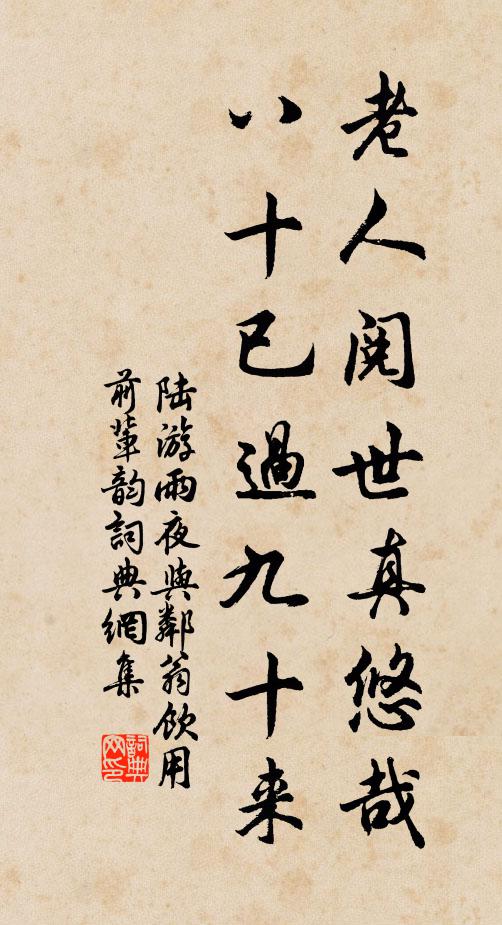 老人阅世真悠哉
八十已過九十来
陆游雨夜與鄰翁飲用
前輩韵詞典網集
詞典网印